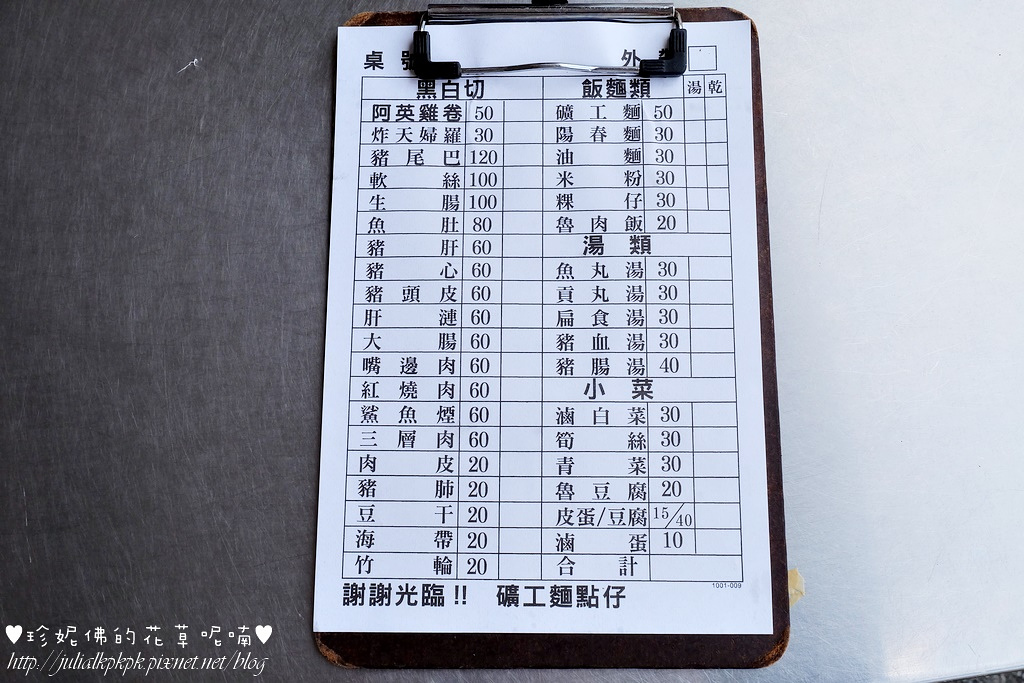 桌 外
黑白切 飯麵類 湯 乾
阿英雞卷 50 礦工麵 50
炸天婦羅 30 陽春麵 30
豬尾巴 120 油麵 30
軟絲 100 米粉 30
生腸 100 粿仔 30
魚肚 80 魯肉飯 20
豬肝 60 湯類
豬心 60 魚丸湯 30
豬頭皮 60 貢丸湯 30
肝漣 60 扁食湯 30
大腸 60 豬血湯 30
嘴邊肉 60 豬腸湯 40
紅燒肉 60 小菜
鯊魚煙 60 滷白菜 30
三層肉 60 筍絲 30
肉皮 20 青菜 30
豬肺 20 魯豆腐 20
豆干 20 皮蛋/豆腐 15/40
海帶 20 滷蛋 10
竹輪 20 合計
1001-009
謝謝光臨!! 礦工麵點仔
♥珍妮佛的花草呢喃♥
http://julialkpkpk.pixnet.net/blog